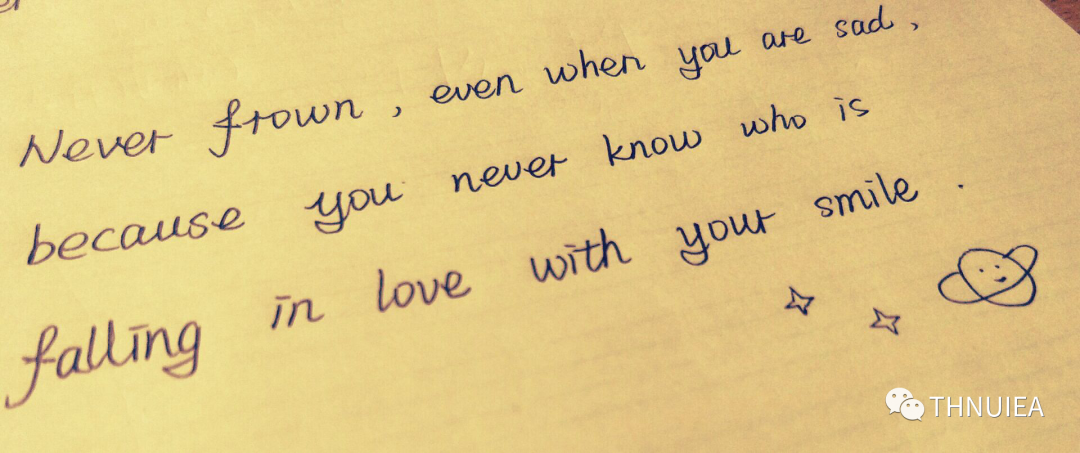 Never frown, even when you are sad,
because you never know who is
falling in love with your smile.
THNUIEA